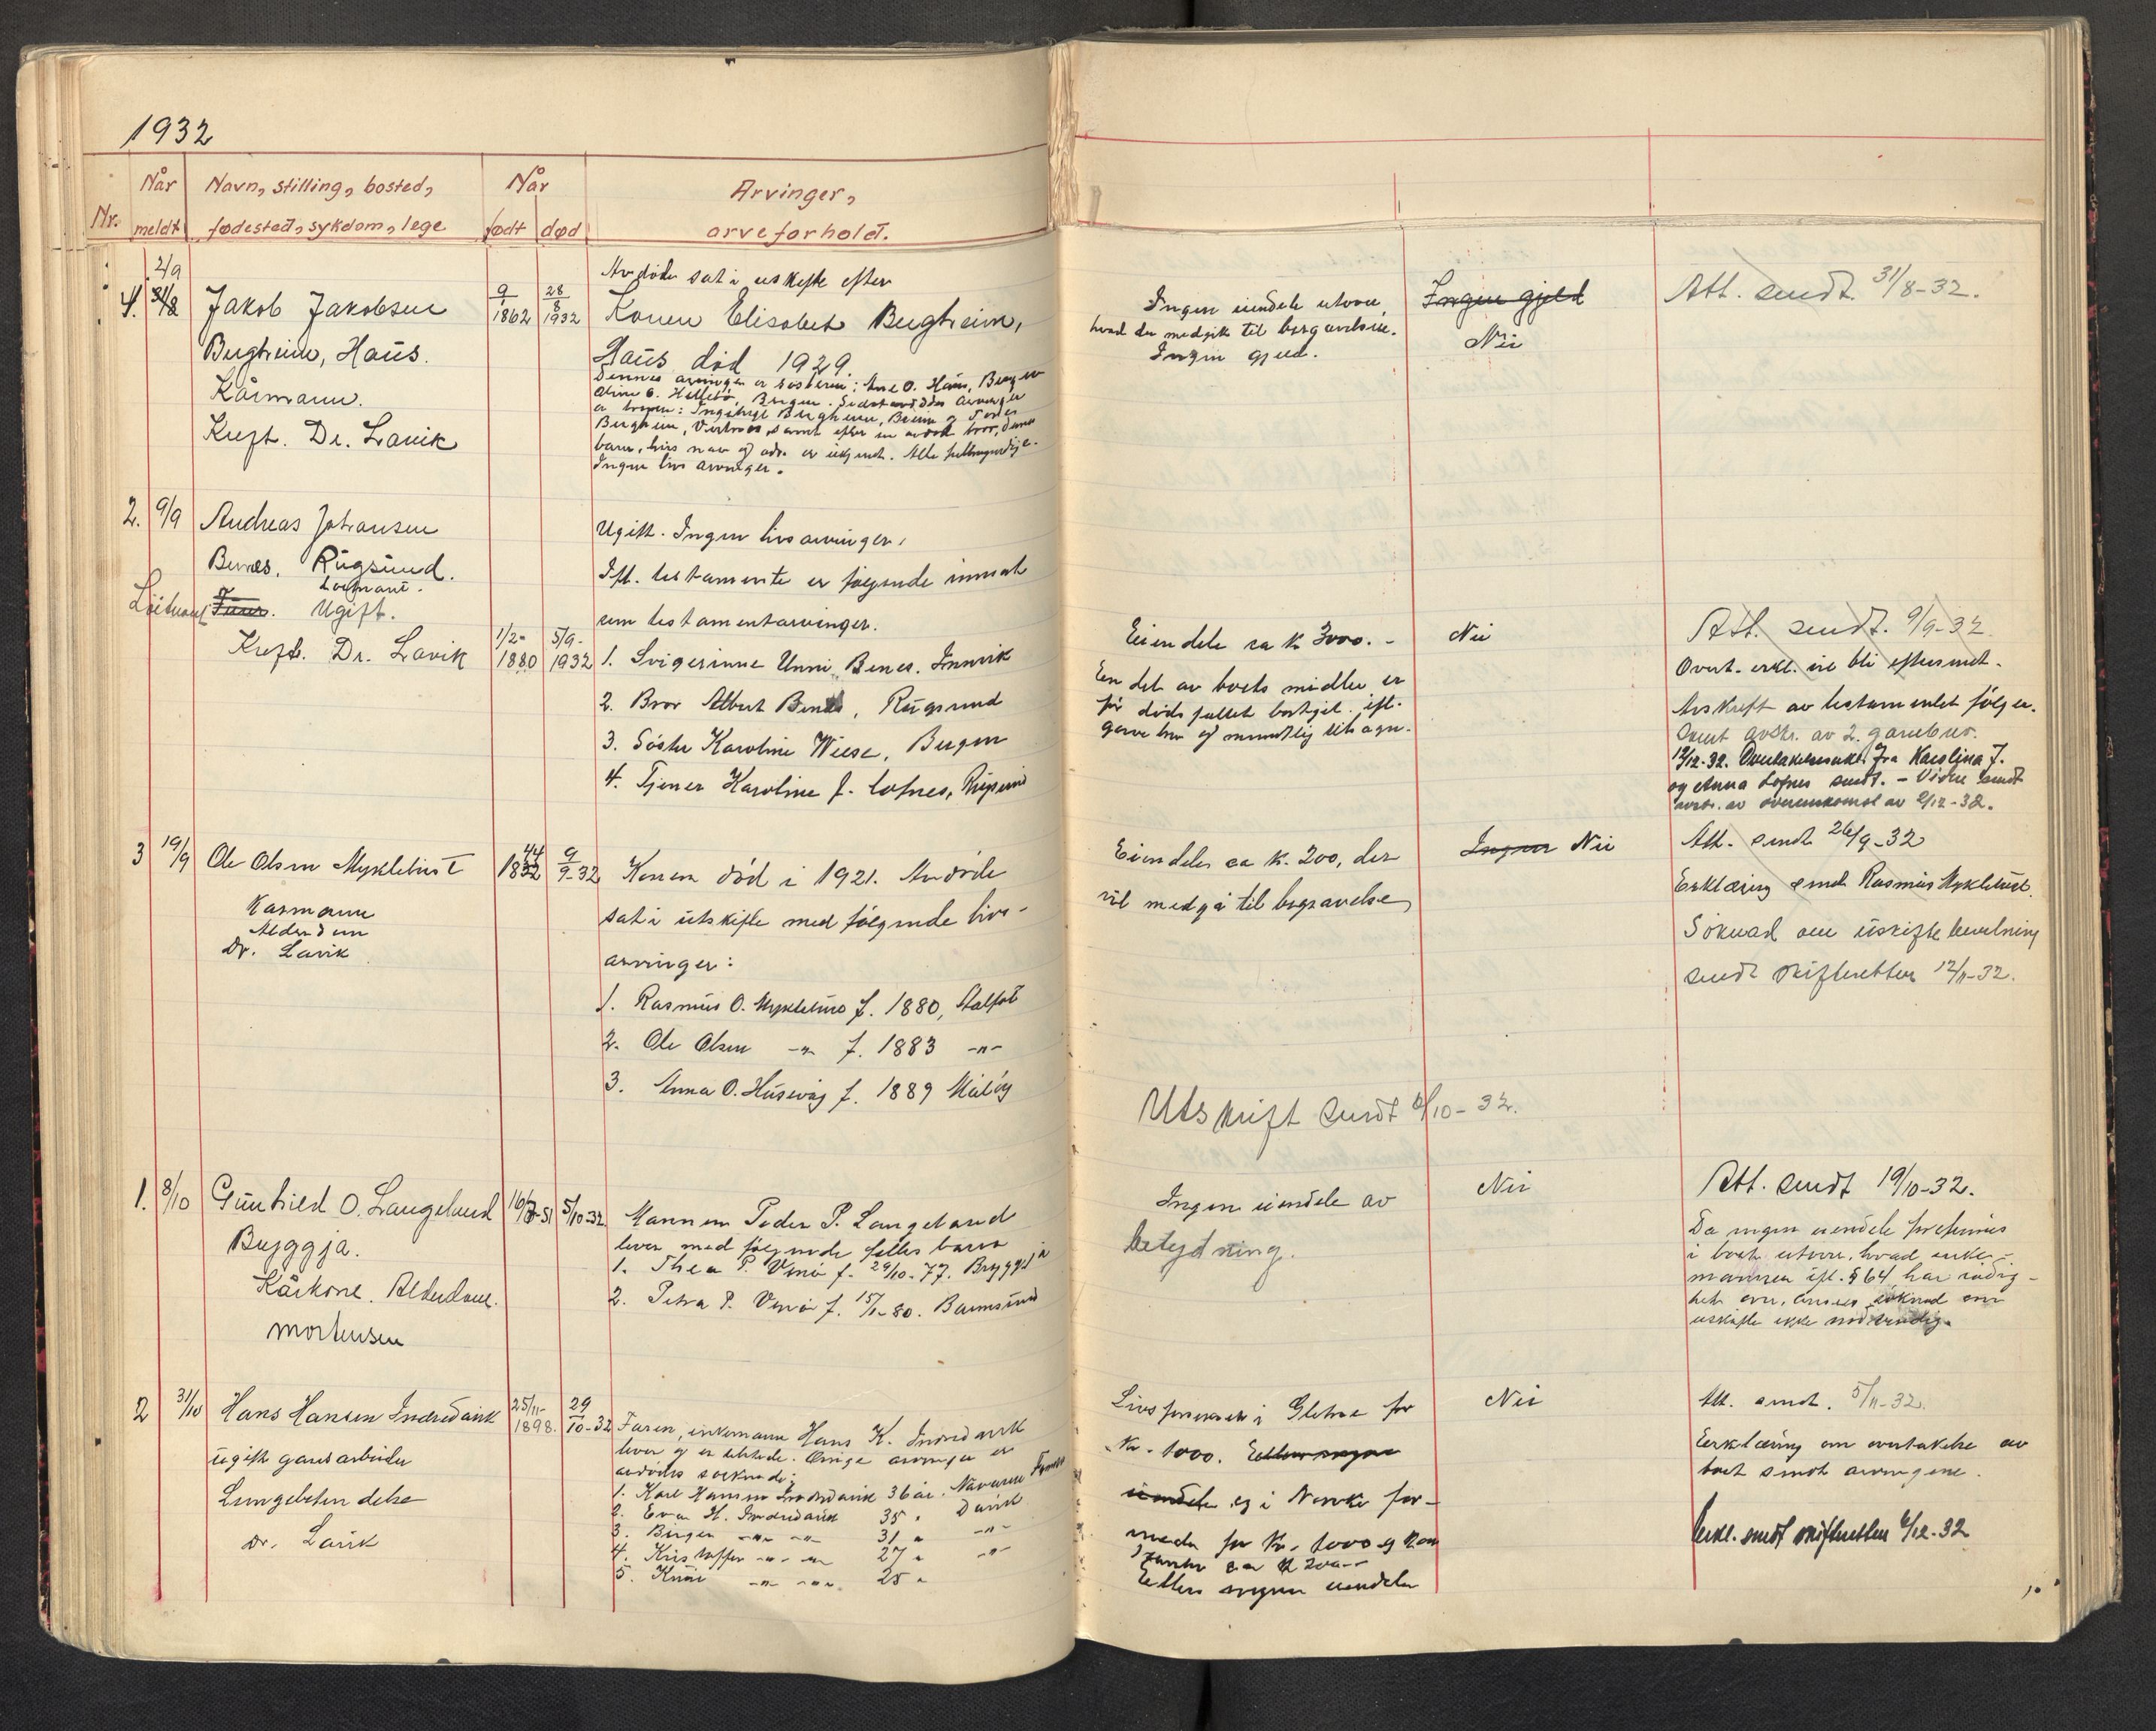 1932
Når Navn, stilling, bosted, Når Arvinger,
Nr. meldt fødested, sykdom, lege født død arveforhold.
2/9
4. 31/8 Jakob Jakobsen 9/1 1862 28/8 1932
Bergheim, Haus.
Kårmann.
Kreft. Dr. Lavik
Avdøde sat i uskifte efter
Konen Elisabet Bergheim,
Haus død 1929.
Dennes arvinger er søsteren: Ane O. Haus, Bergen
Bergen. Sidst avdødes arvinger
er broren: Bergheim,
Bergheim, samt efter en avdød bror, dennes
barn, hvis navn og adr. er ukjendt. Alle fuldmyndige.
Ingen livsarvinger.
Ingen eiendele utover
hvad der medgik til begravelsen.
Ingen gjeld.
Ingen gjeld
Nei
Att. sendt 31/8-32.
2. 9/9 Andreas Johansen
Benes, Rugsund.
Loitnant Ugift.
Kreft. Dr. Lavik 1/2-1880 5/9-1932
Ugift. Ingen livsarvinger,
Ifl. testamente er følgende innsat
som testamentarvinger.
1. Svigerinne Unni Benes. Innvik
2. Bror Albert Benes, Rugsund
3. Søster Karoline Wiese, Bergen
4. Tjener Karoline J. Lofnes, Rugsund
Eiendele ca k 3000.-
En del av boets midler er
før dødsfallet bortgit. ifl.
gavebrev og muntlig utsagn.
Nei
Att. sendt. 9/9-32
Overt. erkl. vil bli eftersendt.
Avskrift av testamentet følger.
Samt avskr. av 2 gavebrev.
12/12-32. fra Karolina J.
og Anna Lofnes sendt. - Videre sendt
avskr. av overenskomst av 9/12-32.
3 19/9 Ole Olsen Myklebust 1844 9/9-32
Kårmann
Alderdom
Dr. Lavik
Konen død i 1921. Avdøde
sat i uskifte med følgende livs-
arvinger:
1. Rasmus O. Myklebust f. 1880, Aalfot
2. Ole Olsen -"- f. 1883 -"-
3. Anna O. Husevåg f. 1889 Måløy
Eiendeler ca k. 200, der
vil medgå til begravelse
Ingen Nei
Att. sendt 26/9-32
Erklæring sendt Rasmus Myklebust.
Søknad om uskiftebevilning
sendt skifteretten 12/11-32.
Utskrift sendt 6/10-32.
1. 8/10 Gunhild O. Langeland 5/10-32
Bryggja.
Kårkone. Alderdom.
Mortensen
Mannen Peder P. Langeland
lever med følgende felles barn
1. Thea P. f. 29/10-77. Bryggja
2. Petra P. f. 15/1-80. Barmsund
Ingen eiendele av
betydning.
Nei
Att. sendt 19/10-32.
Da ingen eiendele forefinnes
i boet utover hvad enke-
mannen ifl. § 64 har rådig-
het over, ansees søknad om
uskifte ikke nødvendig.
2 31/10 Hans Hansen Indredavik 25/11-1898. 29/10-32
ugift gårdsarbeider
Lungebetendelse
Dr. Lavik
Faren, enkemann Hans K. Indredavik
lever og er tilstede. Øvrige arvinger er
avdødes søskende:
1. Karl Hansen Indredavik 36 år.
2. Eva H. Indredavik 35 " Davik
3. Birger -"- -"- 31 " -"-
4. Kristoffer -"- -"- 27 " -"-
5. Knut -"- -"- 25 "
Livsforsikret i Gletne for
Kr. 1000. Ellers ingen
eiendele og i Norske for-
for Kr. 1000 og
ca K 200.-
Ellers ingen eiendeler
Nei
Att. sendt. 5/11-32.
Erklæring om overtakelse av
boet sendt arvingene.
Erkl. sendt skifteretten 6/12-32